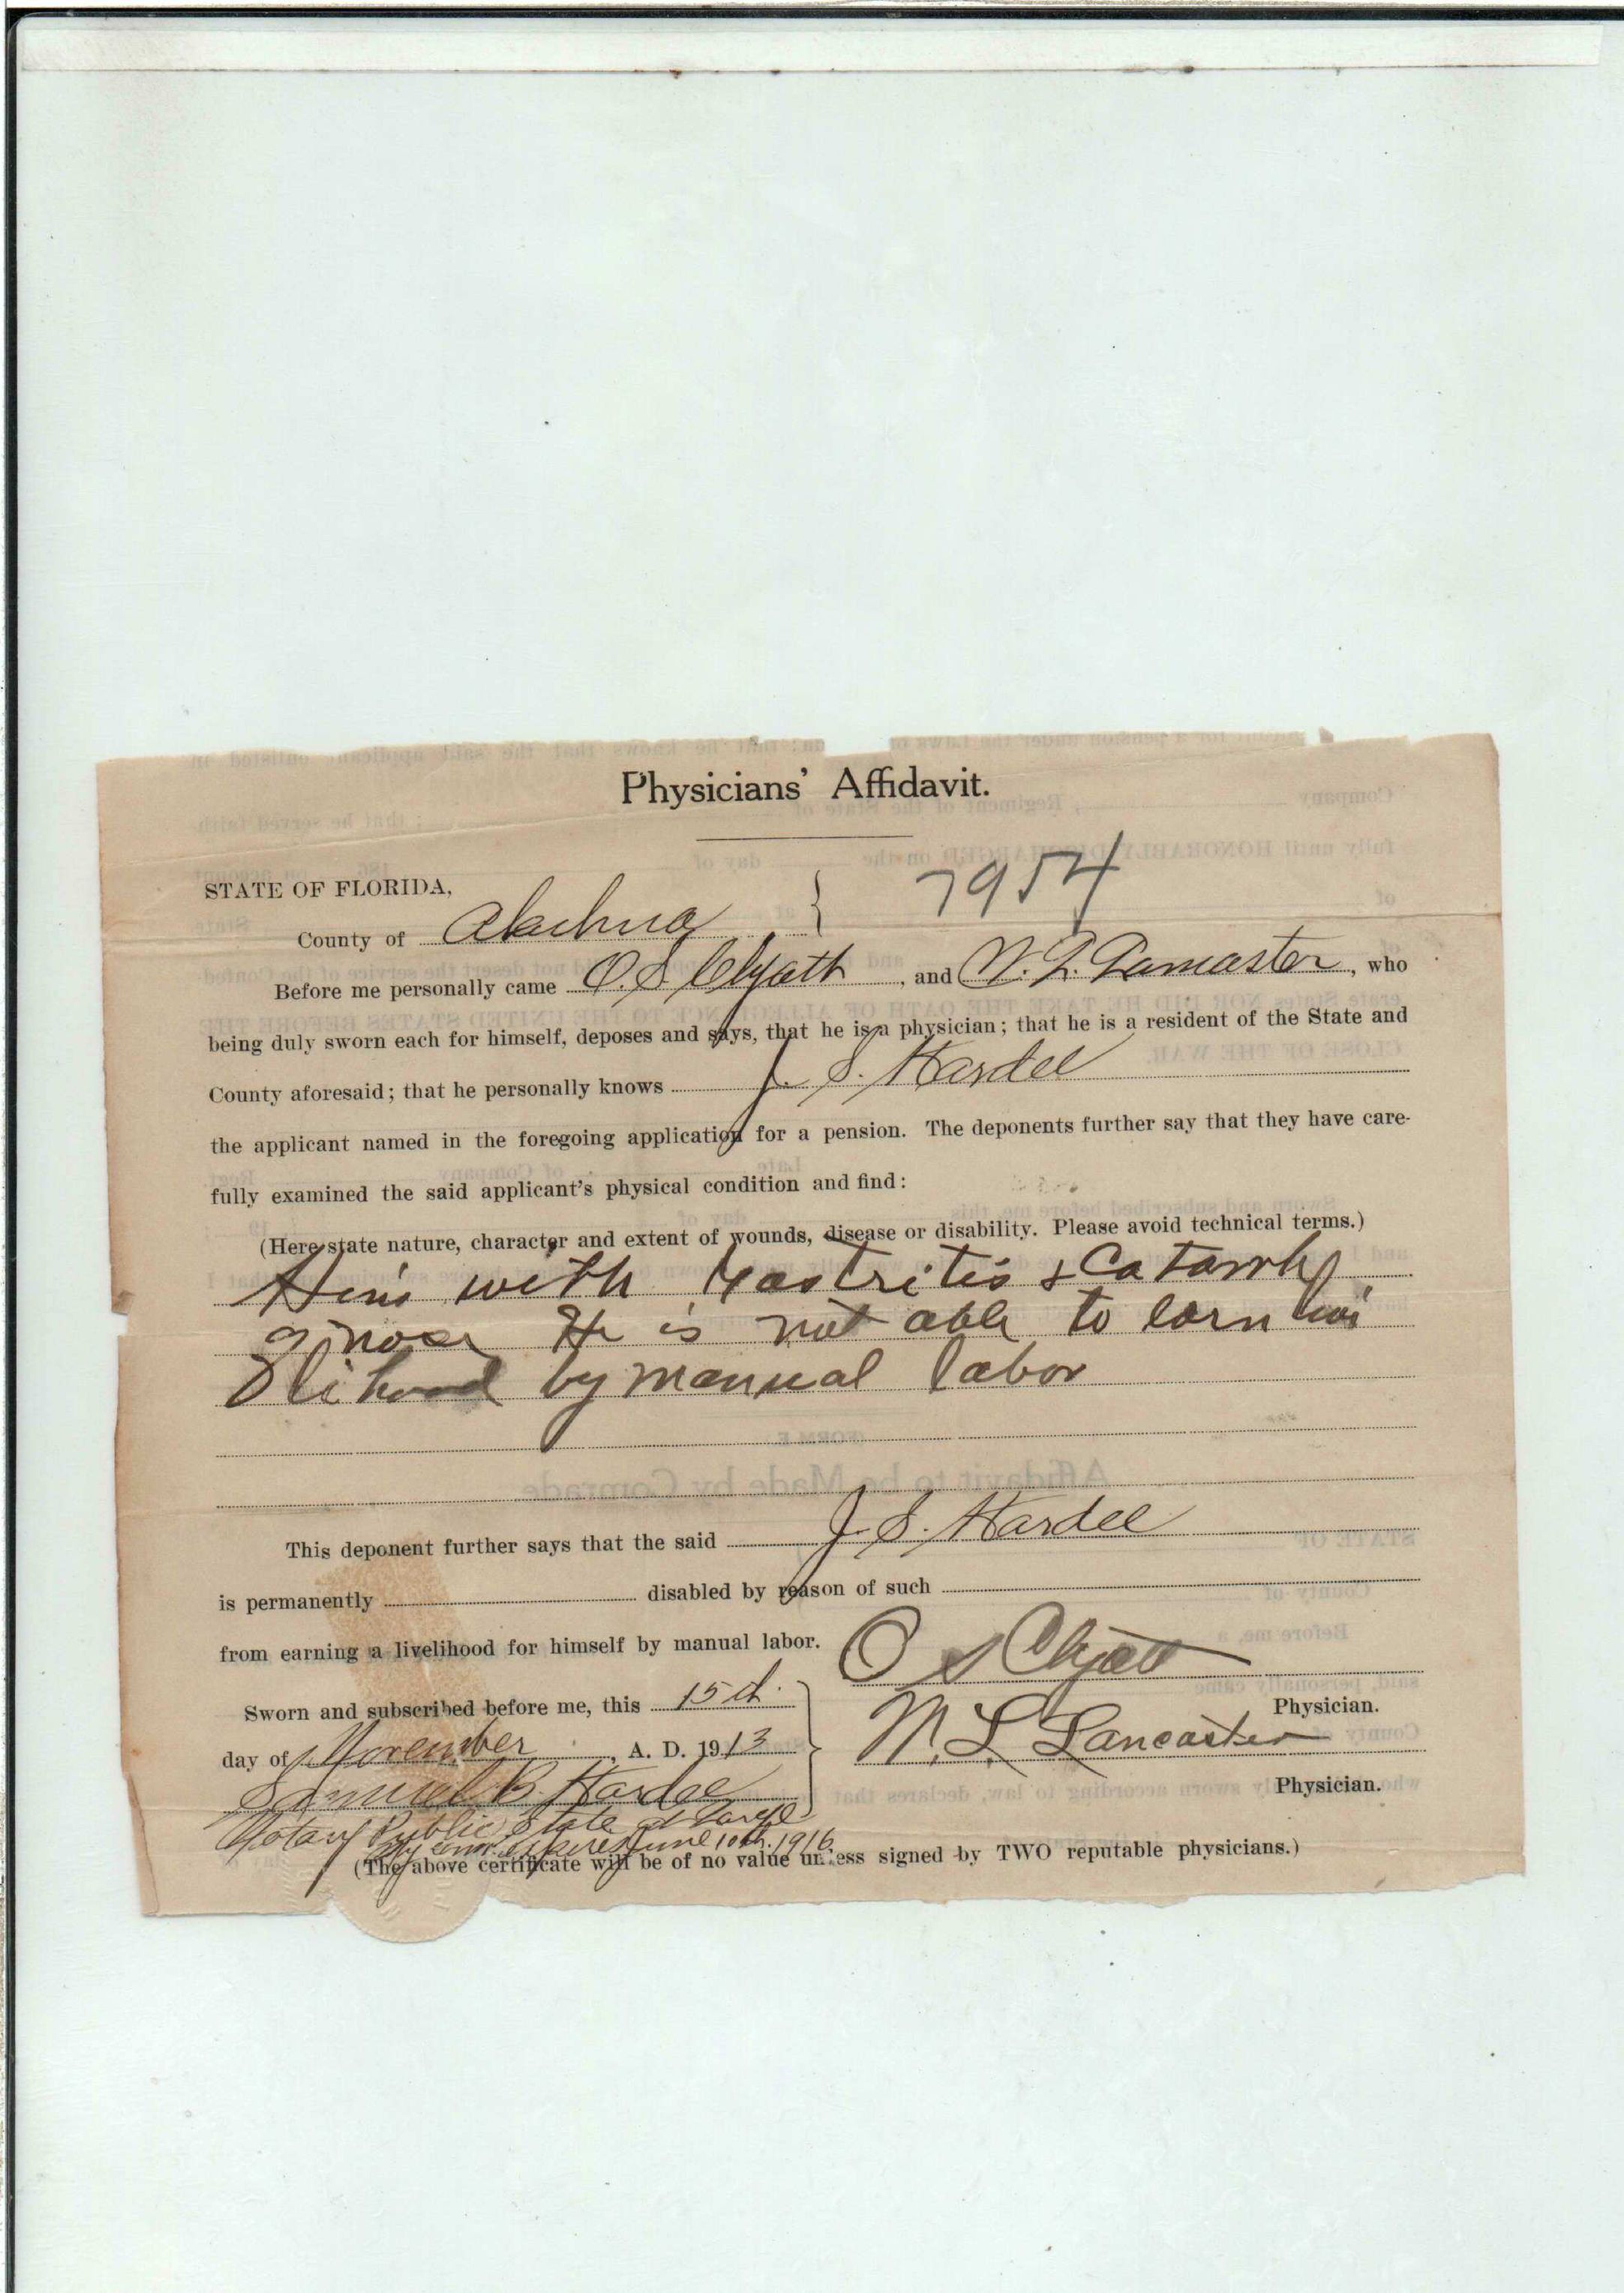 Physicians' Affidavit.
STATE OF FLORIDA,
7954
County of Alachua
Before me personally came O. S. Clyatt, and N. L. Lancaster, who
being duly sworn each for himself, deposes and says, that he is a physician; that he is a resident of the State and
County aforesaid; that he personally knows J. S. Hardee
the applicant named in the foregoing application for a pension. The deponents further say that they have care-
fully examined the said applicant's physical condition and find:
(Here state nature, character and extent of wounds, disease or disability. Please avoid technical terms.)
with Gastritis & Catarrh
He is not able to earn
by manual labor
This deponent further says that the said J. S. Hardee
is permanently disabled by reason of such
from earning a livelihood for himself by manual labor.
O S Clyatt
Sworn and subscribed before me, this 15th
Physician.
day of November, A. D. 1913
N. L. Lancaster
Samuel B. Hardee
Physician.
Notary Public State at Large
My com. expires June 10th. 1916
(The above certificate will be of no value unless signed by TWO reputable physicians.)